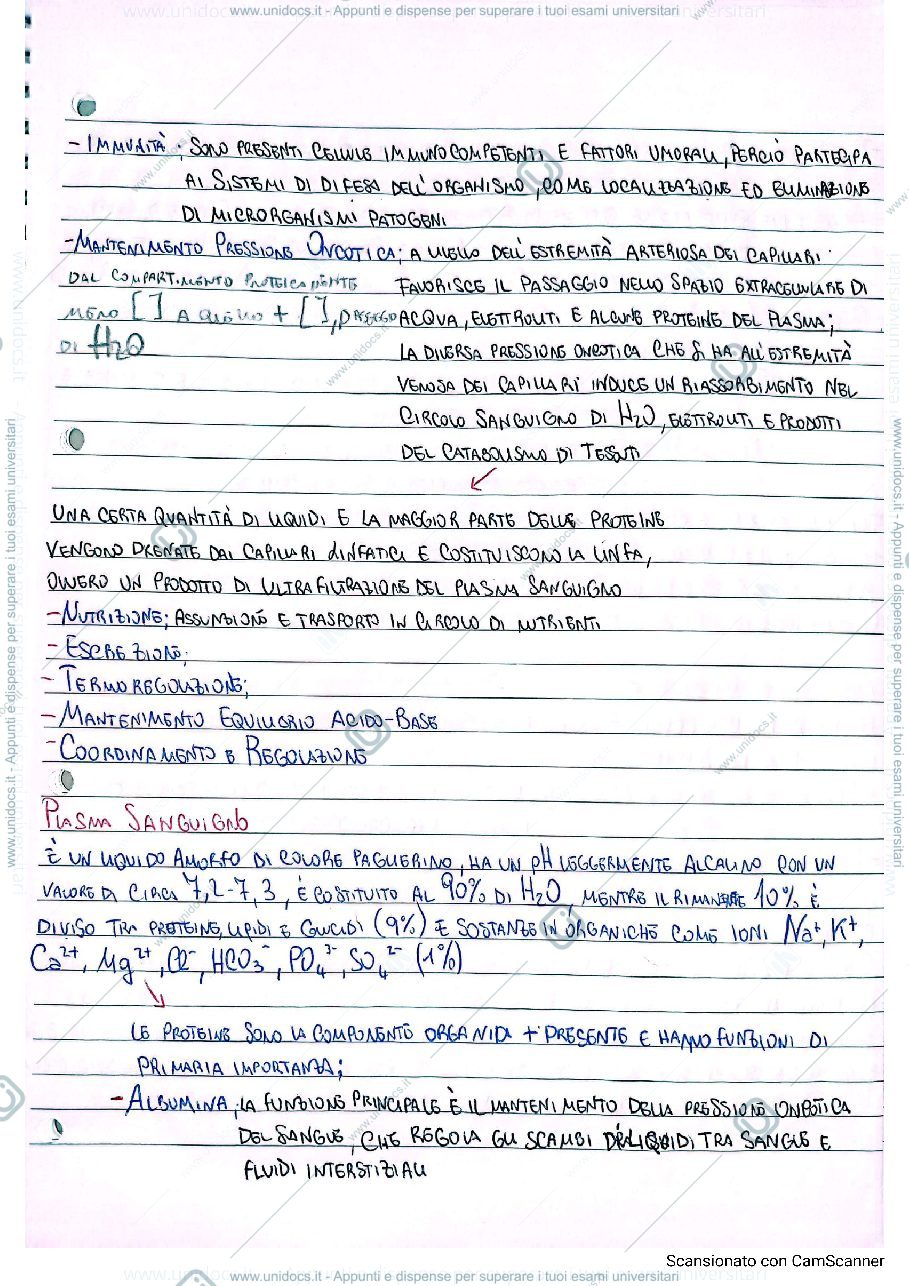 www.unidocs.it - Appunti e dispense per superare i tuoi esami universitari
- IMMUNITÀ: SONO PRESENTI CELLULE IMMUNOCOMPETENTI E FATTORI UMORALI, PERCIÒ PARTECIPA
AI SISTEMI DI DIFESA DELL'ORGANISMO, COME LOCALIZZAZIONE ED ELIMINAZIONE
DI MICRORGANISMI PATOGENI
- MANTENIMENTO PRESSIONE ONCOTICA; A LIVELLO DELL'ESTREMITÀ ARTERIOSA DEI CAPILLARI
DAL COMPARTIMENTO PROTEICAMENTE
MENO [ ] A QUELLO + [ ], PASSAGGIO
DI H2O
FAVORISCE IL PASSAGGIO NELLO SPAZIO EXTRACELLULARE DI
ACQUA, ELETTROLITI E ALCUNE PROTEINE DEL PLASMA;
LA DIVERSA PRESSIONE ONCOTICA CHE SI HA ALL'ESTREMITÀ
VENOSA DEI CAPILLARI INDUCE UN RIASSORBIMENTO NEL
CIRCOLO SANGUIGNO DI H2O, ELETTROLITI E PRODOTTI
DEL CATABOLISMO DI TESSUTI
UNA CERTA QUANTITÀ DI LIQUIDI E LA MAGGIOR PARTE DELLE PROTEINE
VENGONO DRENATE DAI CAPILLARI LINFATICI E COSTITUISCONO LA LINFA,
OVVERO UN PRODOTTO DI ULTRAFILTRAZIONE DEL PLASMA SANGUIGNO
- NUTRIZIONE; ASSUNZIONE E TRASPORTO IN CIRCOLO DI NUTRIENTI
- ESCREZIONE;
- TERMOREGOLAZIONE;
- MANTENIMENTO EQUILIBRIO ACIDO-BASE
- COORDINAMENTO E REGOLAZIONE
PLASMA SANGUIGNO
È UN LIQUIDO AMORFO DI COLORE PAGLIERINO, HA UN pH LEGGERMENTE ALCALINO CON UN
VALORE DI CIRCA 7,2-7,3, È COSTITUITO AL 90% DI H2O, MENTRE IL RIMANENTE 10% È
DIVISO TRA PROTEINE, LIPIDI E GLUCIDI (9%) E SOSTANZE INORGANICHE COME IONI Na⁺, K⁺,
Ca²⁺, Mg²⁺, Cl⁻, HCO₃⁻, PO₄³⁻, SO₄²⁻ (1%)
LE PROTEINE SONO LA COMPONENTE ORGANICA + PRESENTE E HANNO FUNZIONI DI
PRIMARIA IMPORTANZA;
- ALBUMINA, LA FUNZIONE PRINCIPALE È IL MANTENIMENTO DELLA PRESSIONE ONCOTICA
DEL SANGUE, CHE REGOLA GLI SCAMBI DI LIQUIDI TRA SANGUE E
FLUIDI INTERSTIZIALI
Scansionato con CamScanner
www.unidocs.it - Appunti e dispense per superare i tuoi esami universitari